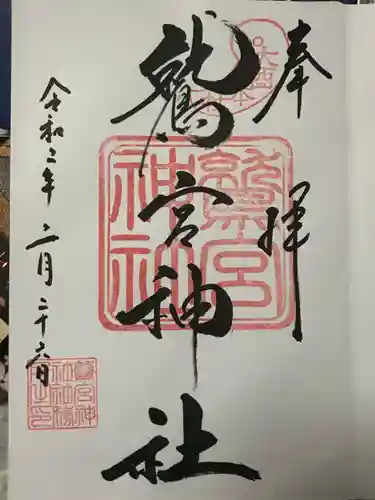 奉拝
鷲宮神社
令和二年二月二十六日
鷲宮
神社